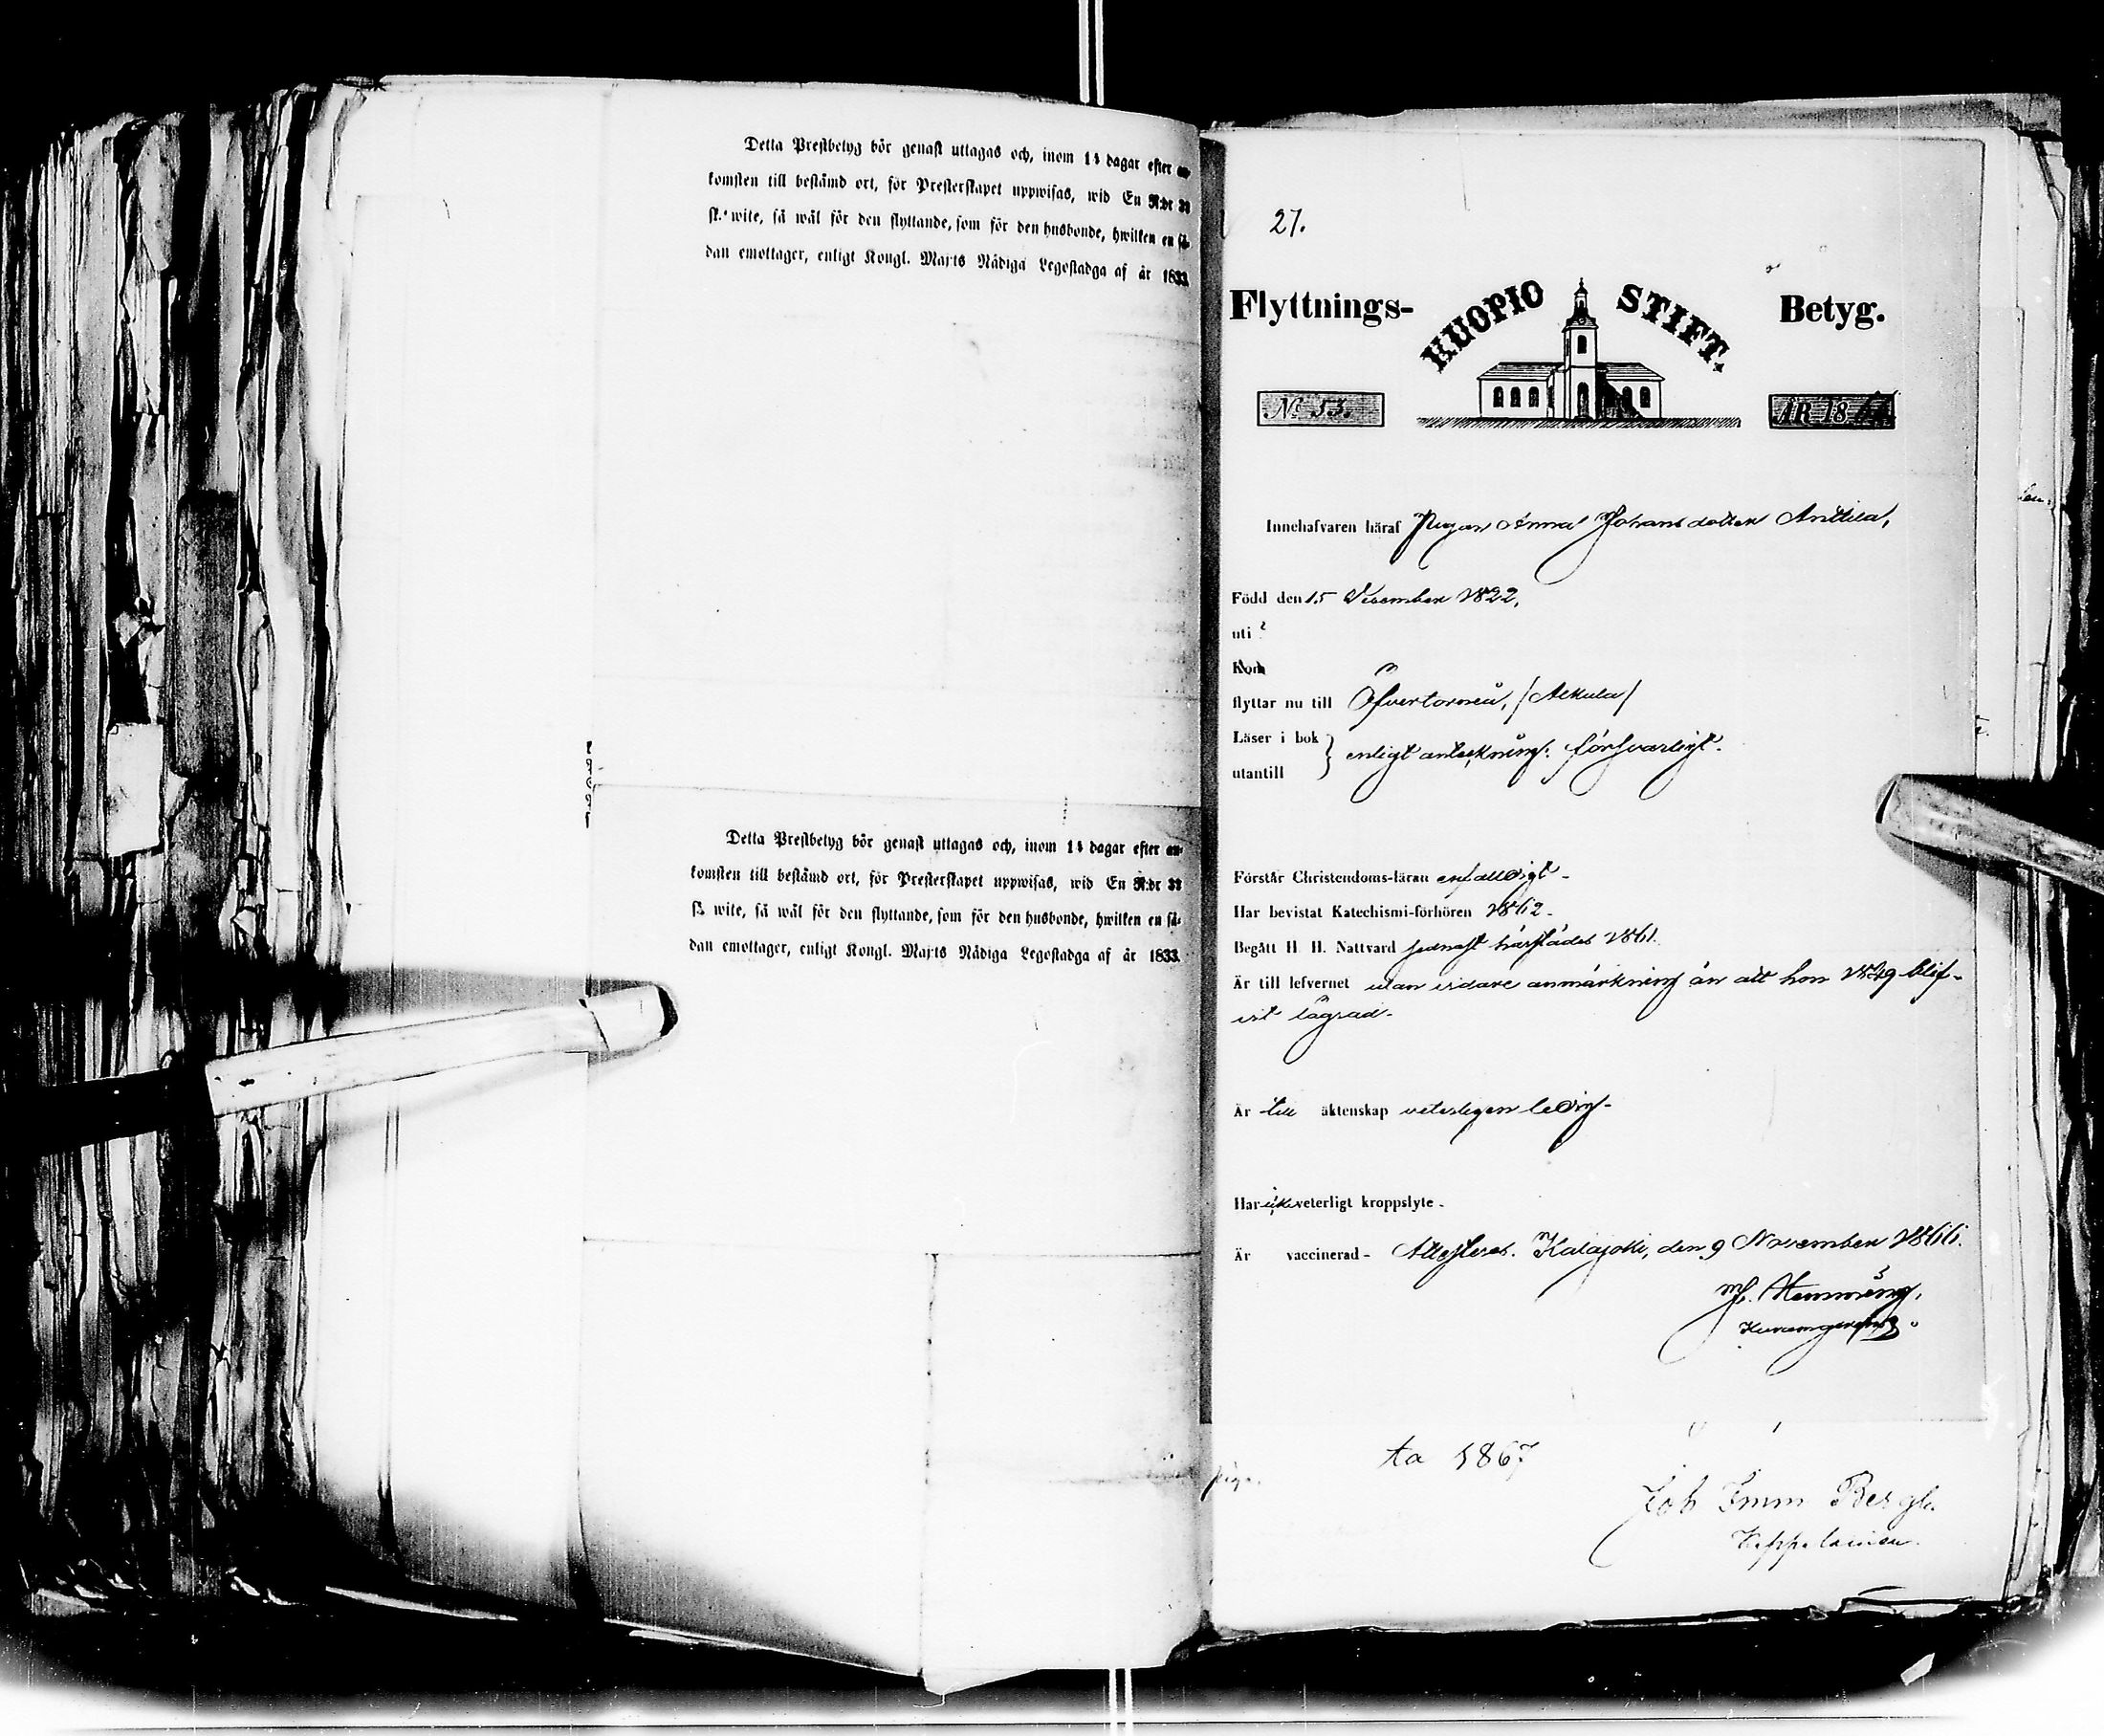 Detta Prestbetyg bör genast uttagas och, inom 14 dagar efter an-
komsten till bestämd ort, för Presterskapet uppwisas, wid En R:dr 32
sk. wite, så wäl för den flyttande, som för den husbonde, hwilken en så-
dan emottager, enligt Kongl. Maj:ts Nådiga Legostadga af år 1833.
Detta Prestbetyg bör genast uttagas och, inom 14 dagar efter an-
komsten till bestämd ort, för Presterskapet uppwisas, wid En R:dr 32
sk. wite, så wäl för den flyttande, som för den husbonde, hwilken en så-
dan emottager, enligt Kongl. Maj:ts Nådiga Legostadga af år 1833.
27.
Flyttnings- KUOPIO STIFT. Betyg.
No 53. ÅR 1866
Innehafvaren häraf Pigan Anna Johansdotter Anttila,
Född den 15 December 1822,
uti
Kom
flyttar nu till Öfvertorneå, /Alkula/
Läser i bok
utantill } enligt anteckning: försvarligt.
Förstår Christendoms-läran enfalldigt-
Har bevistat Katechismi-förhören 1862-
Begått H. H. Nattvard sednast härstädes 1861.
Är till lefvernet utan vidare anmärkning än att hon 1849 blif-
vit lägrad-
Är till äktenskap veterligen ledig-
Har icke veterligt kroppslyte.
Är vaccinerad- Attesteras. Kalajoki, den 9 November 1866.
Hemming,
ta 1867
Joh Imm Bergh
Kappelainen.